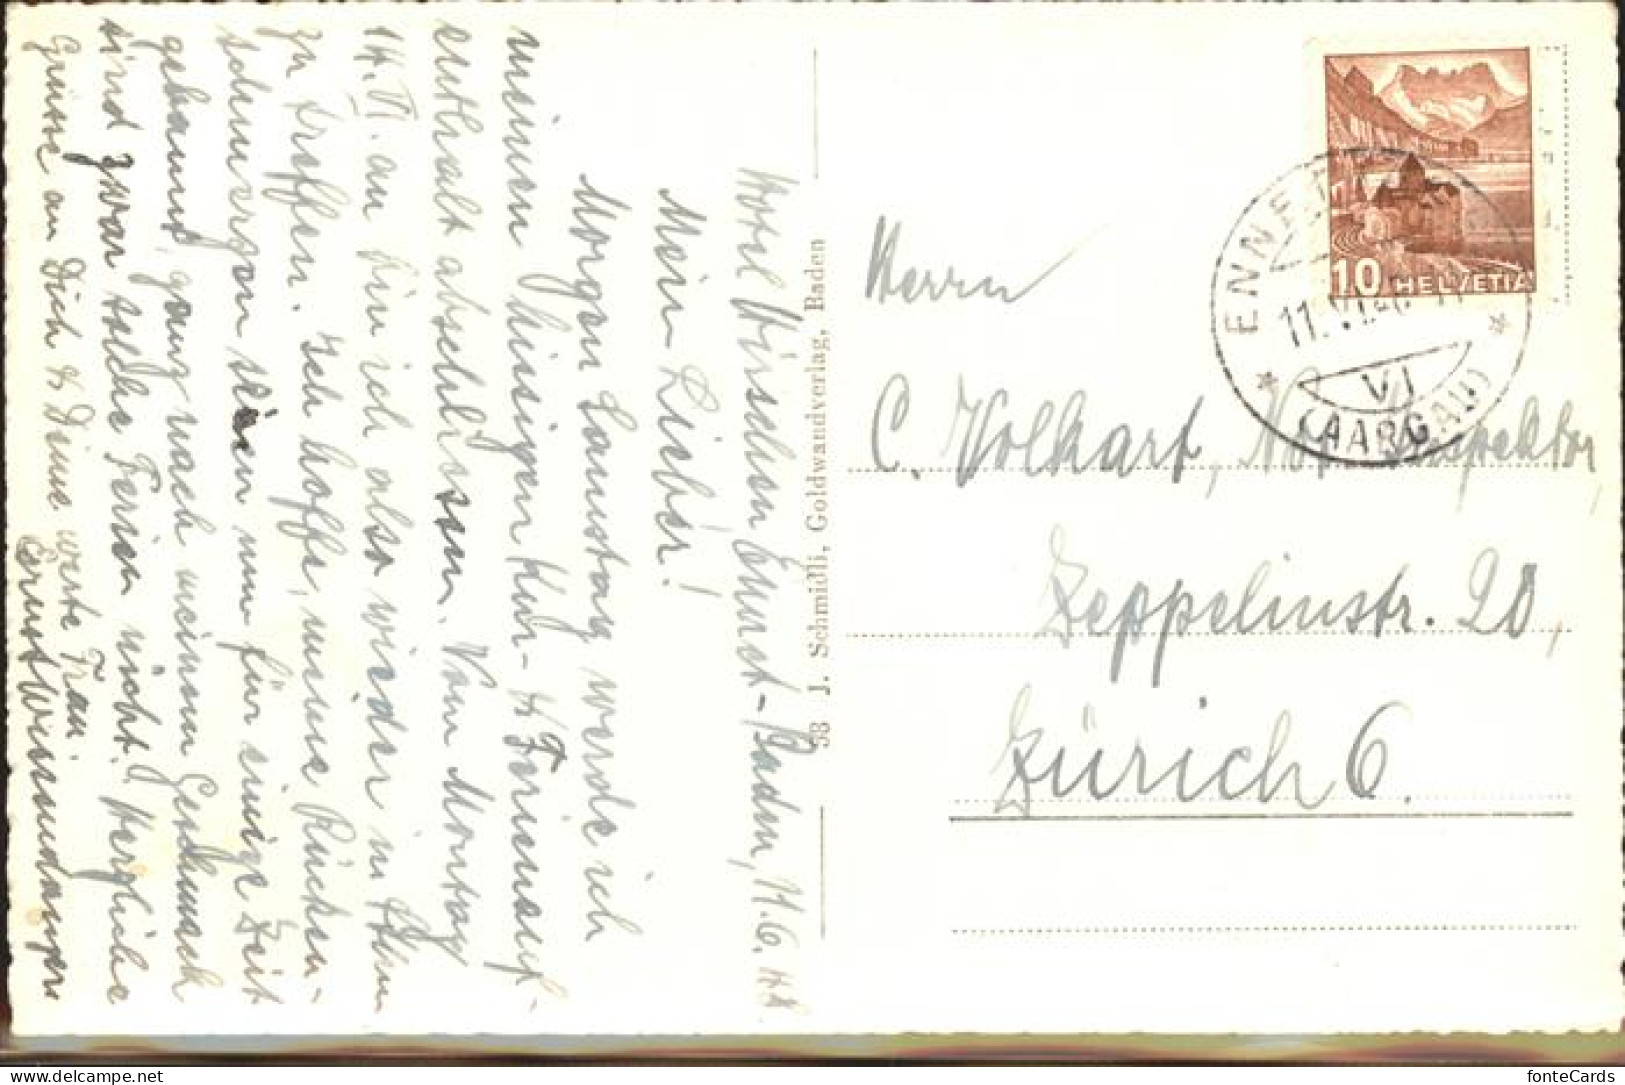 Hotel Hirschen Ennet-Baden, 11.6.
Mein Lieber!
Morgen Samstag werde ich
meinen hiesigen Kur- & Ferienauf-
enthalt abschliessen. Vom Montag
14. VI. an bin ich also wieder im
zu treffen. Ich hoffe, meine Rücken-
schmerzen seien nun für einige Zeit
gebannt, ganz nach meinem Geschmack
sind zwar solche Ferien nicht. Herzliche
Grüsse an Dich & Deine werte Frau.
Ernst
38 J. Schmidli, Goldwandverlag, Baden
10 HELVETIA
ENNET
11. VI.
VI
(AARGAU)
Herrn
C. Volkart, Inspektor,
Zeppelinstr. 20,
Zürich 6.
fonteCards